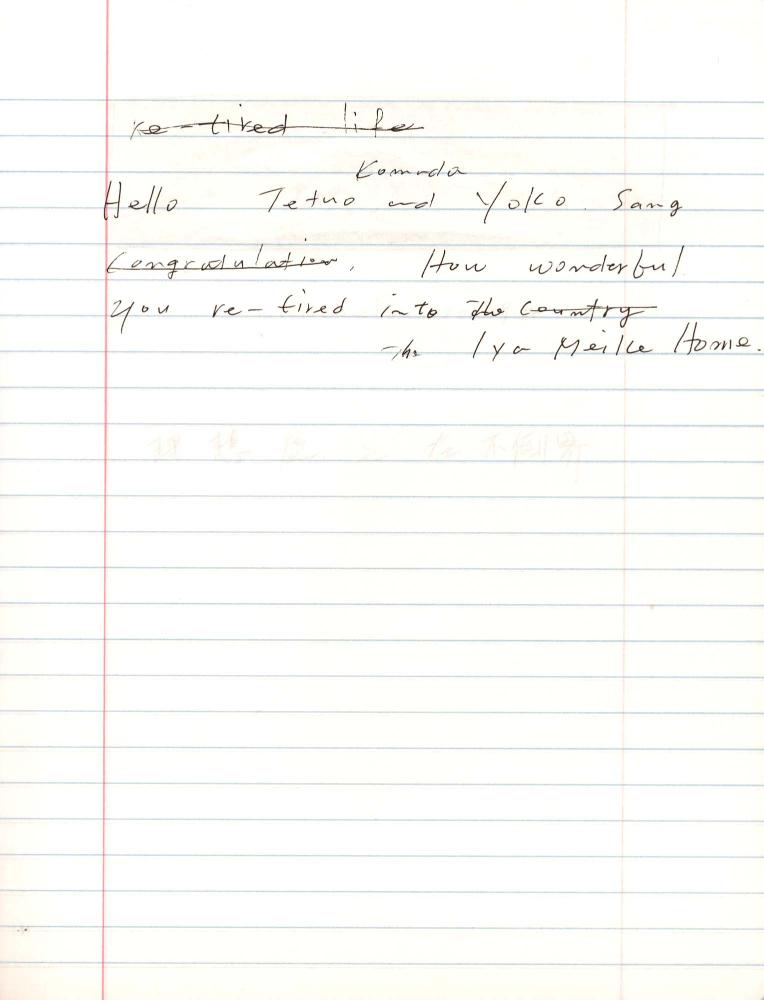 re-tired life
Komada
Hello Tetuo and Yoko. Sang
Congradulation. How wonderful
you re-tired into the country
the Iya Meike Home.